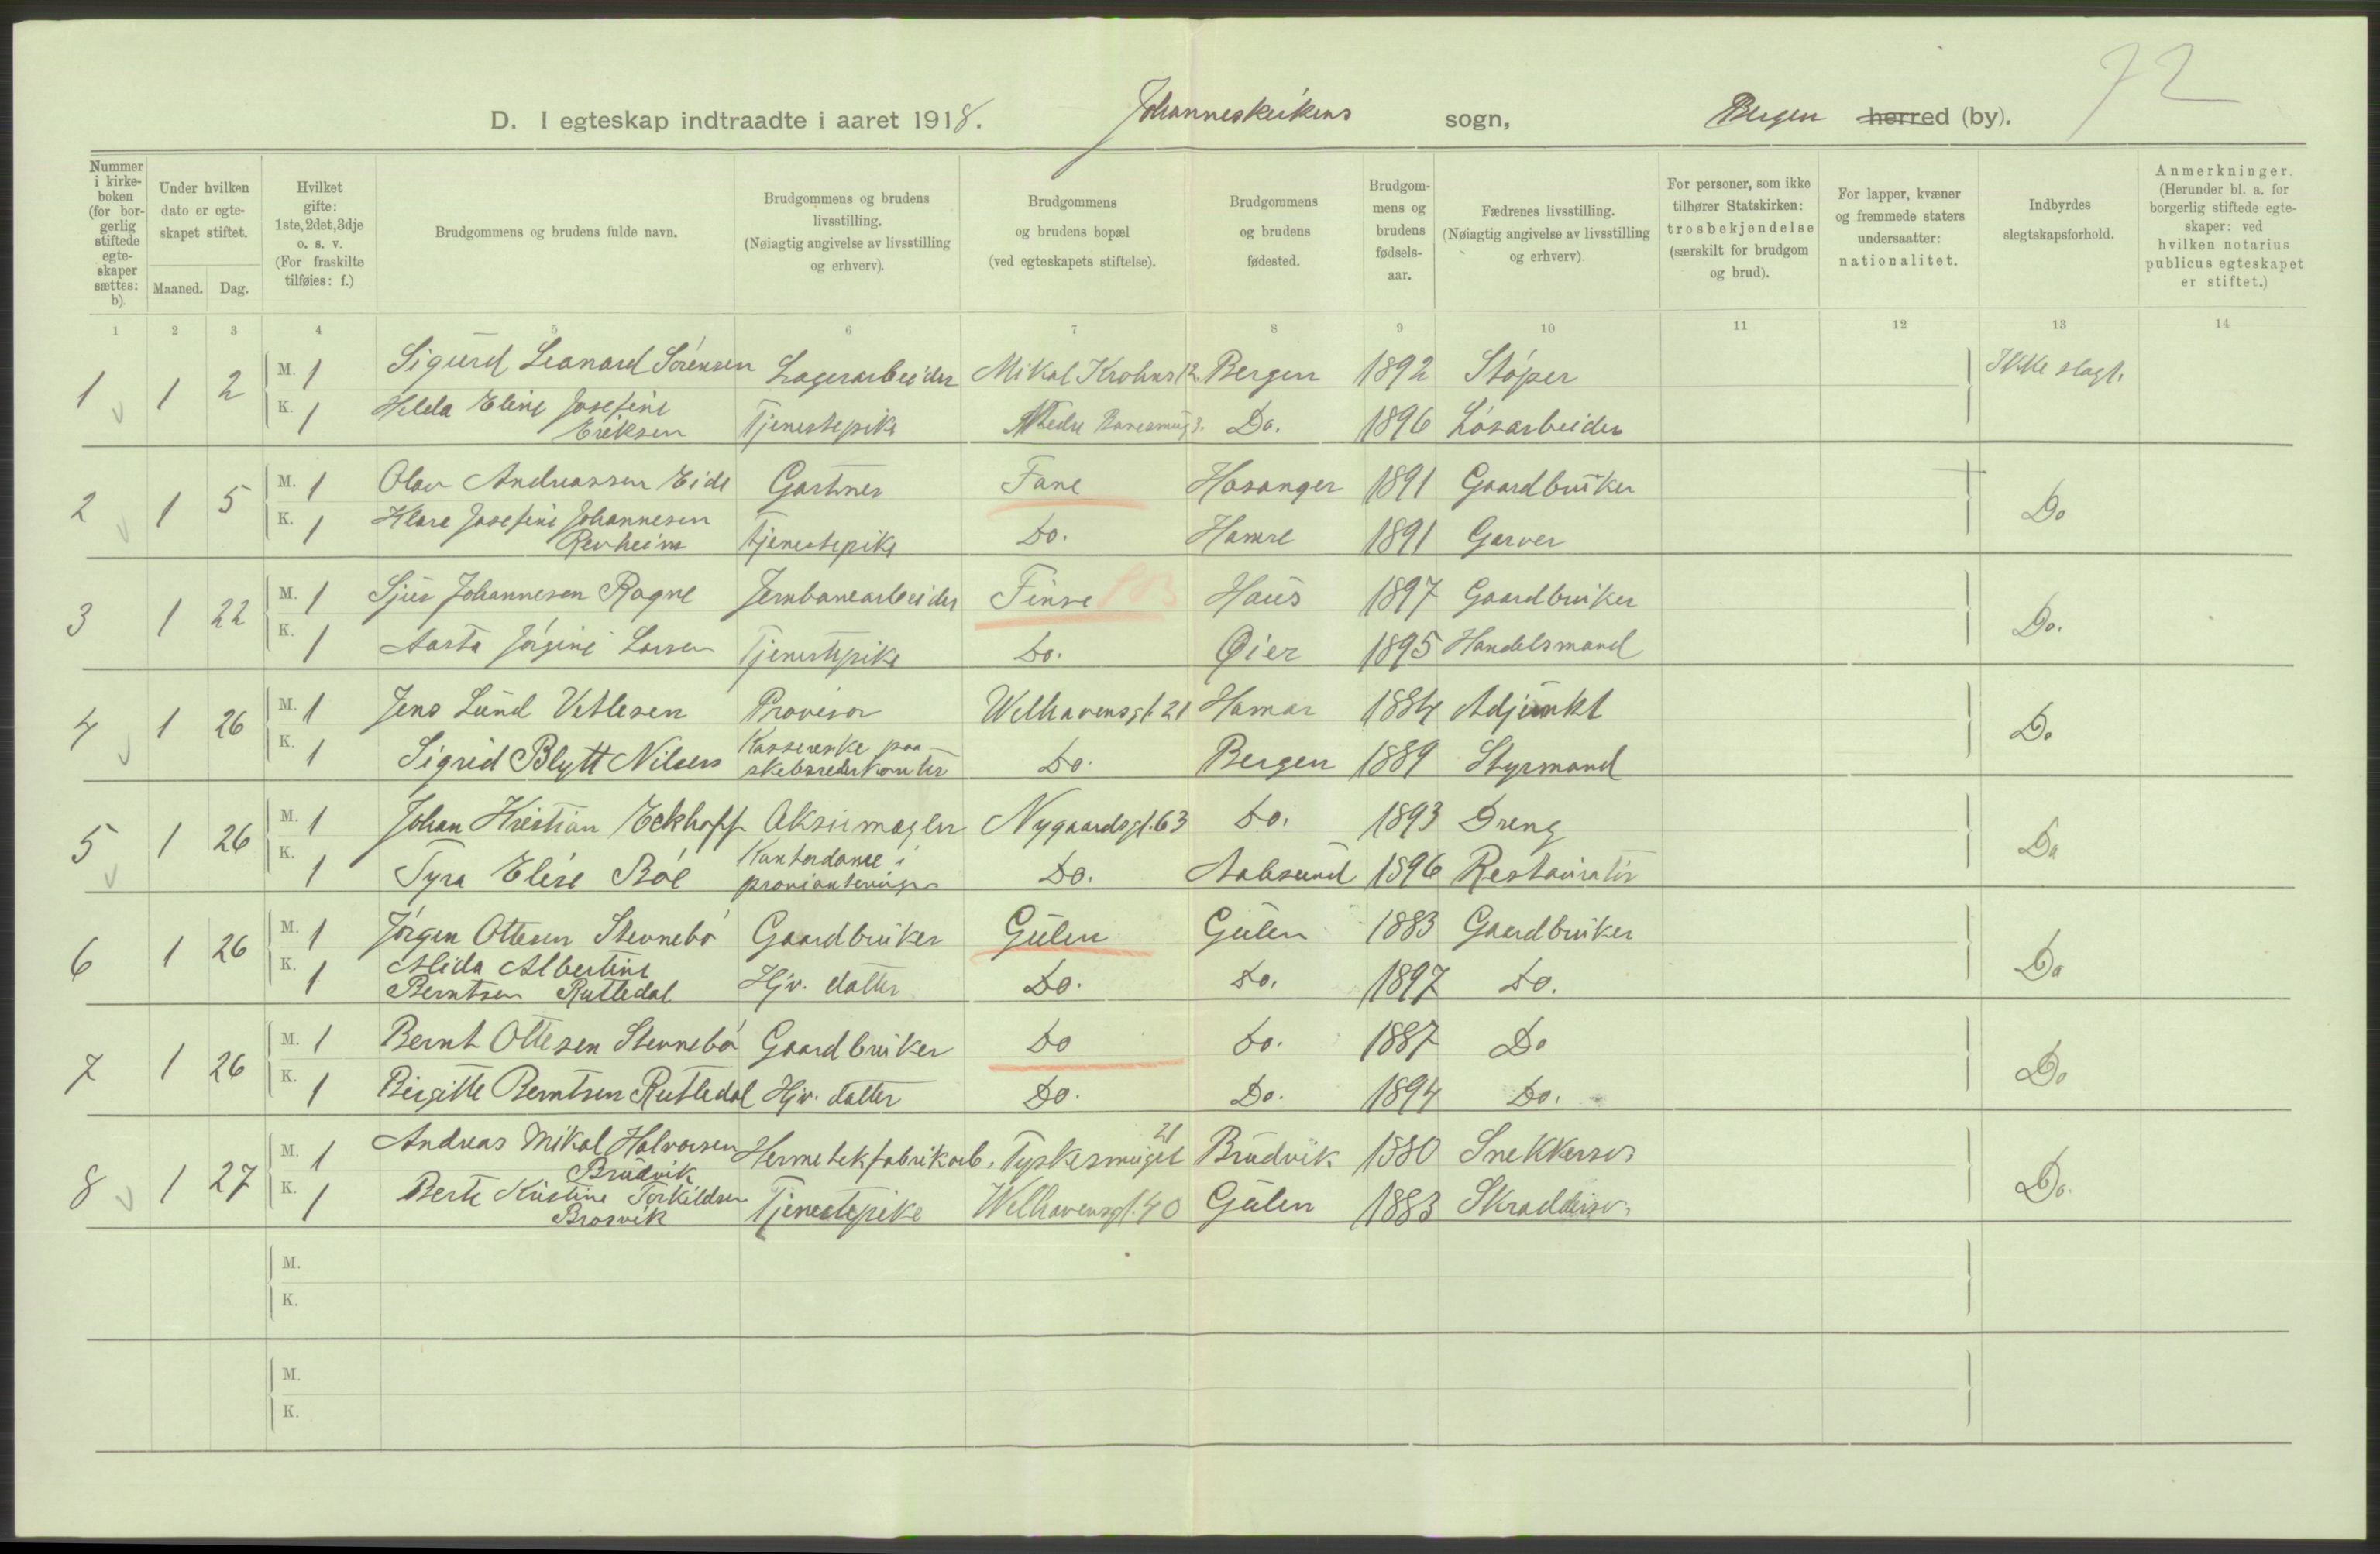 72
D. I egteskap indtraadte i aaret 1918. Johanneskirkens sogn, Bergen herred (by).
Nummer i kirkeboken (for borgerlig stiftede egteskaper sættes: b).
Under hvilken dato er egteskapet stiftet. Maaned. Dag.
Hvilket gifte: 1ste, 2det, 3dje o. s. v. (For fraskilte tilføies: f.)
Brudgommens og brudens fulde navn.
Brudgommens og brudens livsstilling. (Nøiagtig angivelse av livsstilling og erhverv).
Brudgommens og brudens bopæl (ved egteskapets stiftelse).
Brudgommens og brudens fødested.
Brudgommens og brudens fødselsaar.
Fædrenes livsstilling. (Nøiagtig angivelse av livsstilling og erhverv).
For personer, som ikke tilhører Statskirken: trosbekjendelse (særskilt for brudgom og brud).
For lapper, kvæner og fremmede staters undersaatter: nationalitet.
Indbyrdes slegtskapsforhold.
Anmerkninger. (Herunder bl. a. for borgerlig stiftede egteskaper: ved hvilken notarius publicus egteskapet er stiftet.)
1 2 3 4 5 6 7 8 9 10 11 12 13 14
1 1 2 M. 1 Sigurd Leonard Sörensen Lagerarbeider Mikal Krohns 12. Bergen 1892 Stóper Ikke slegt.
K. 1 Hilda Eline Josefine Eriksen Tjenestepike Nedre 3. Do. 1896 Lösarbeider
2 1 5 M. 1 Olav Andreassen Eide Gartner Fane Hosanger 1891 Gaardbruker Do
K. 1 Klara Josefine Johannesen Revheim Tjenestepike Do. Hamre 1891 Garver
3 1 22 M. 1 Sjur Johannesen Rogne Jernbanearbeider Finse Haus 1897 Gaardbruker Do.
K. 1 Aasta Jörgine Larsen Tjenestepike Do. Øier 1895 Handelsmand
4 1 26 M. 1 Jens Lund Vetlesen Provisor Welhavensgt. 21 Hamar 1884 Adjunkt Do
K. 1 Sigrid Blytt Nilsen Kassererske paa skibsrederkontor Do. Bergen 1889 Styrmand
5 1 26 M. 1 Johan Kristian Eckhoff Aksiemægler Nygaardsgt. 63 Do. 1893 Dreng Do
K. 1 Tyra Elise Böe Kontordame i Do. Aalesund 1896 Restauratör
6 1 26 M. 1 Jörgen Ottesen Stevnebö Gaardbruker Gulen Gulen 1883 Gaardbruker Do
K. 1 Alida Albertine Berntsen Rutledal Hjv. datter Do. Do. 1897 Do.
7 1 26 M. 1 Bernt Ottesen Stevnebö Gaardbruker Do Do. 1887 Do Do
K. 1 Birgitte Berntsen Rutledal Hjv. datter Do. Do. 1894 Do.
8 1 27 M. 1 Andreas Mikal Halvorsen Brudvik Hermetekfabrikarb. Tyskesmuget 21 Brudvik 1880 Snekkersv. Do.
K. 1 Berte Kristine Torkildsen Brosvik Tjenestepike Welhavensgt. 40 Gulen 1883 Skraddersv.
M.
K.
M.
K.